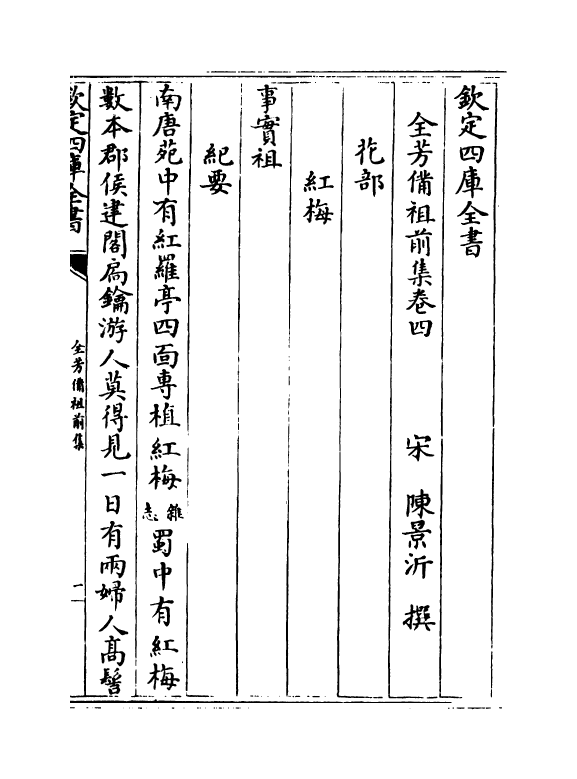 欽定四庫全書
全芳備祖前集卷四
宋 陳景沂 撰
花部
紅梅
事實祖
紀要
南唐苑中有紅羅亭四面專植紅梅雜志蜀中有紅梅
數本郡侯建閣扃鑰游人莫得見一日有兩婦人髙髻
欽定四庫全書
全芳備祖前集
一